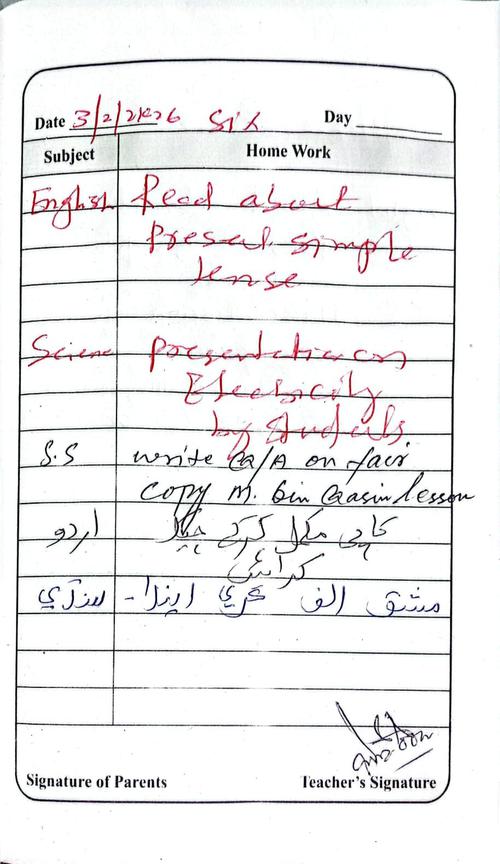 Date 3/2/2k26 Six Day
Subject Home Work
English Read about
Present simple
tense
Science presentation on
Electricity
by students
S.S write Q/A on fair
copy M. bin Qasim lesson
اردو کاپی مکمل کرکے چیک
کرائیں
سنڌي مشق الف
Signature of Parents Teacher's Signature